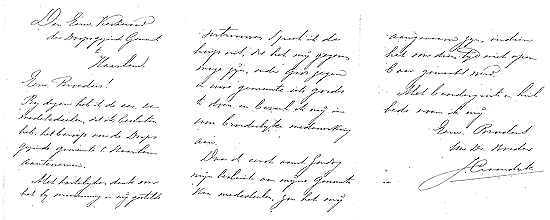 Den Eerw. Kerkeraad
der Doopsgezind Gemeent
te
Haarlem
Eerw. Broeders!
Bij dezen heb ik de eer, u
mededeelen, dat ik besloten
heb het beroep van de Doops
gezinde gemeente te Haarlem
aantenemen.
Met hartelijken dank voor
het bij vernieuwing in mij gestelde
vertrouwen spreek ik de
hoop uit, dat het mij gegeven
moge zijn, onder Gods zegen
in uwe gemeente iets goeds
te doen, en beveel ik mij in
uwe broederlijke medewerking
aan.
Daar ik eerst aanst. Zondag
mijn besluit aan mijne gemeente
kan mededeelen, zou het mij
aangenaam zijn, indien
het vóór dien tijd niet open
baar gemaakt werd.
Met broedergroet en heil
bede noem ik mij
Eerw. Broeders
Uw dw. Broeder